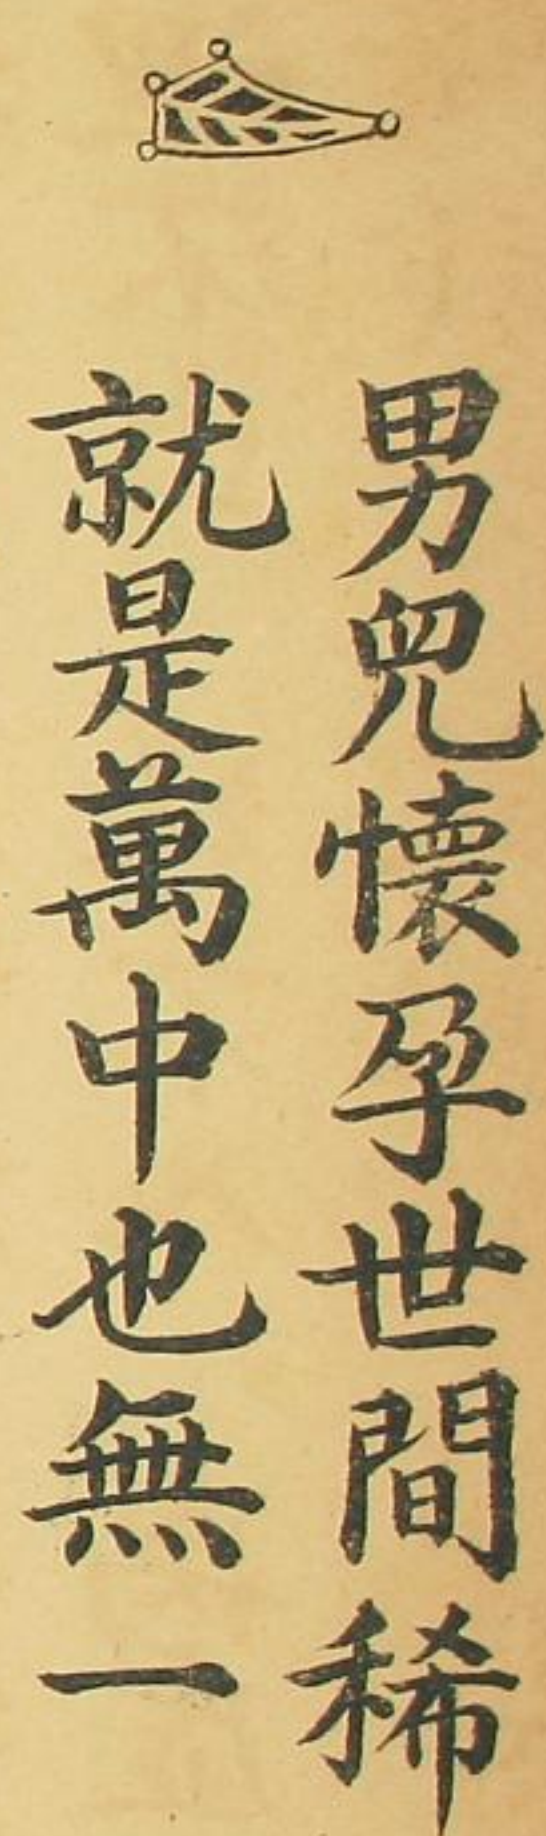 男兒懷孕世間稀
就是萬中也無一